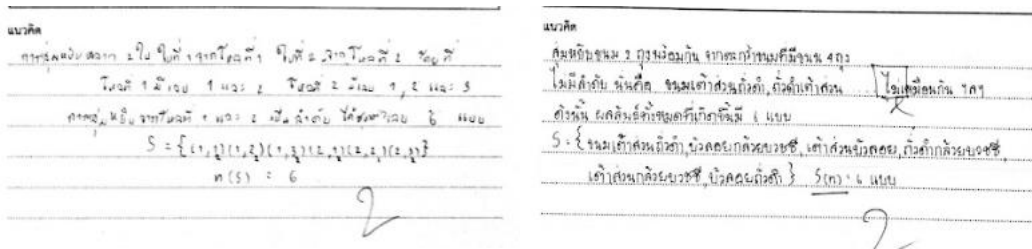 แนวคิด
การสุ่มหยิบสลาก 2 ใบ ใบที่ 1 จากโหลที่ 1 ใบที่ 2 จากโหลที่ 2 โดยที่
โหลที่ 1 มีเลข 1 และ 2 โหลที่ 2 มีเลข 1, 2 และ 3
การสุ่มหยิบจากโหลที่ 1 และ 2 เป็นลำดับ ได้ตัวเลข 6 แบบ
S = {(1,1)(1,2)(1,3)(2,1)(2,2)(2,3)}
n(S) = 6
2
แนวคิด
สุ่มหยิบขนม 2 ถุงพร้อมกัน จากตะกร้าขนมที่มีขนม 4 ถุง
ไม่มีลำดับ นั่นคือ ขนมเต้าส่วนถั่วดำ, ถั่วดำเต้าส่วน ไม่เหมือนกัน ฯลฯ
ดังนั้น ผลลัพธ์ทั้งหมดที่เกิดขึ้นมี 6 แบบ
S = {ขนมเต้าส่วนถั่วดำ, บัวลอยกล้วยบวชชี, เต้าส่วนบัวลอย, ถั่วดำกล้วยบวชชี,
เต้าส่วนกล้วยบวชชี, บัวลอยถั่วดำ } S(n) = 6 แบบ
2